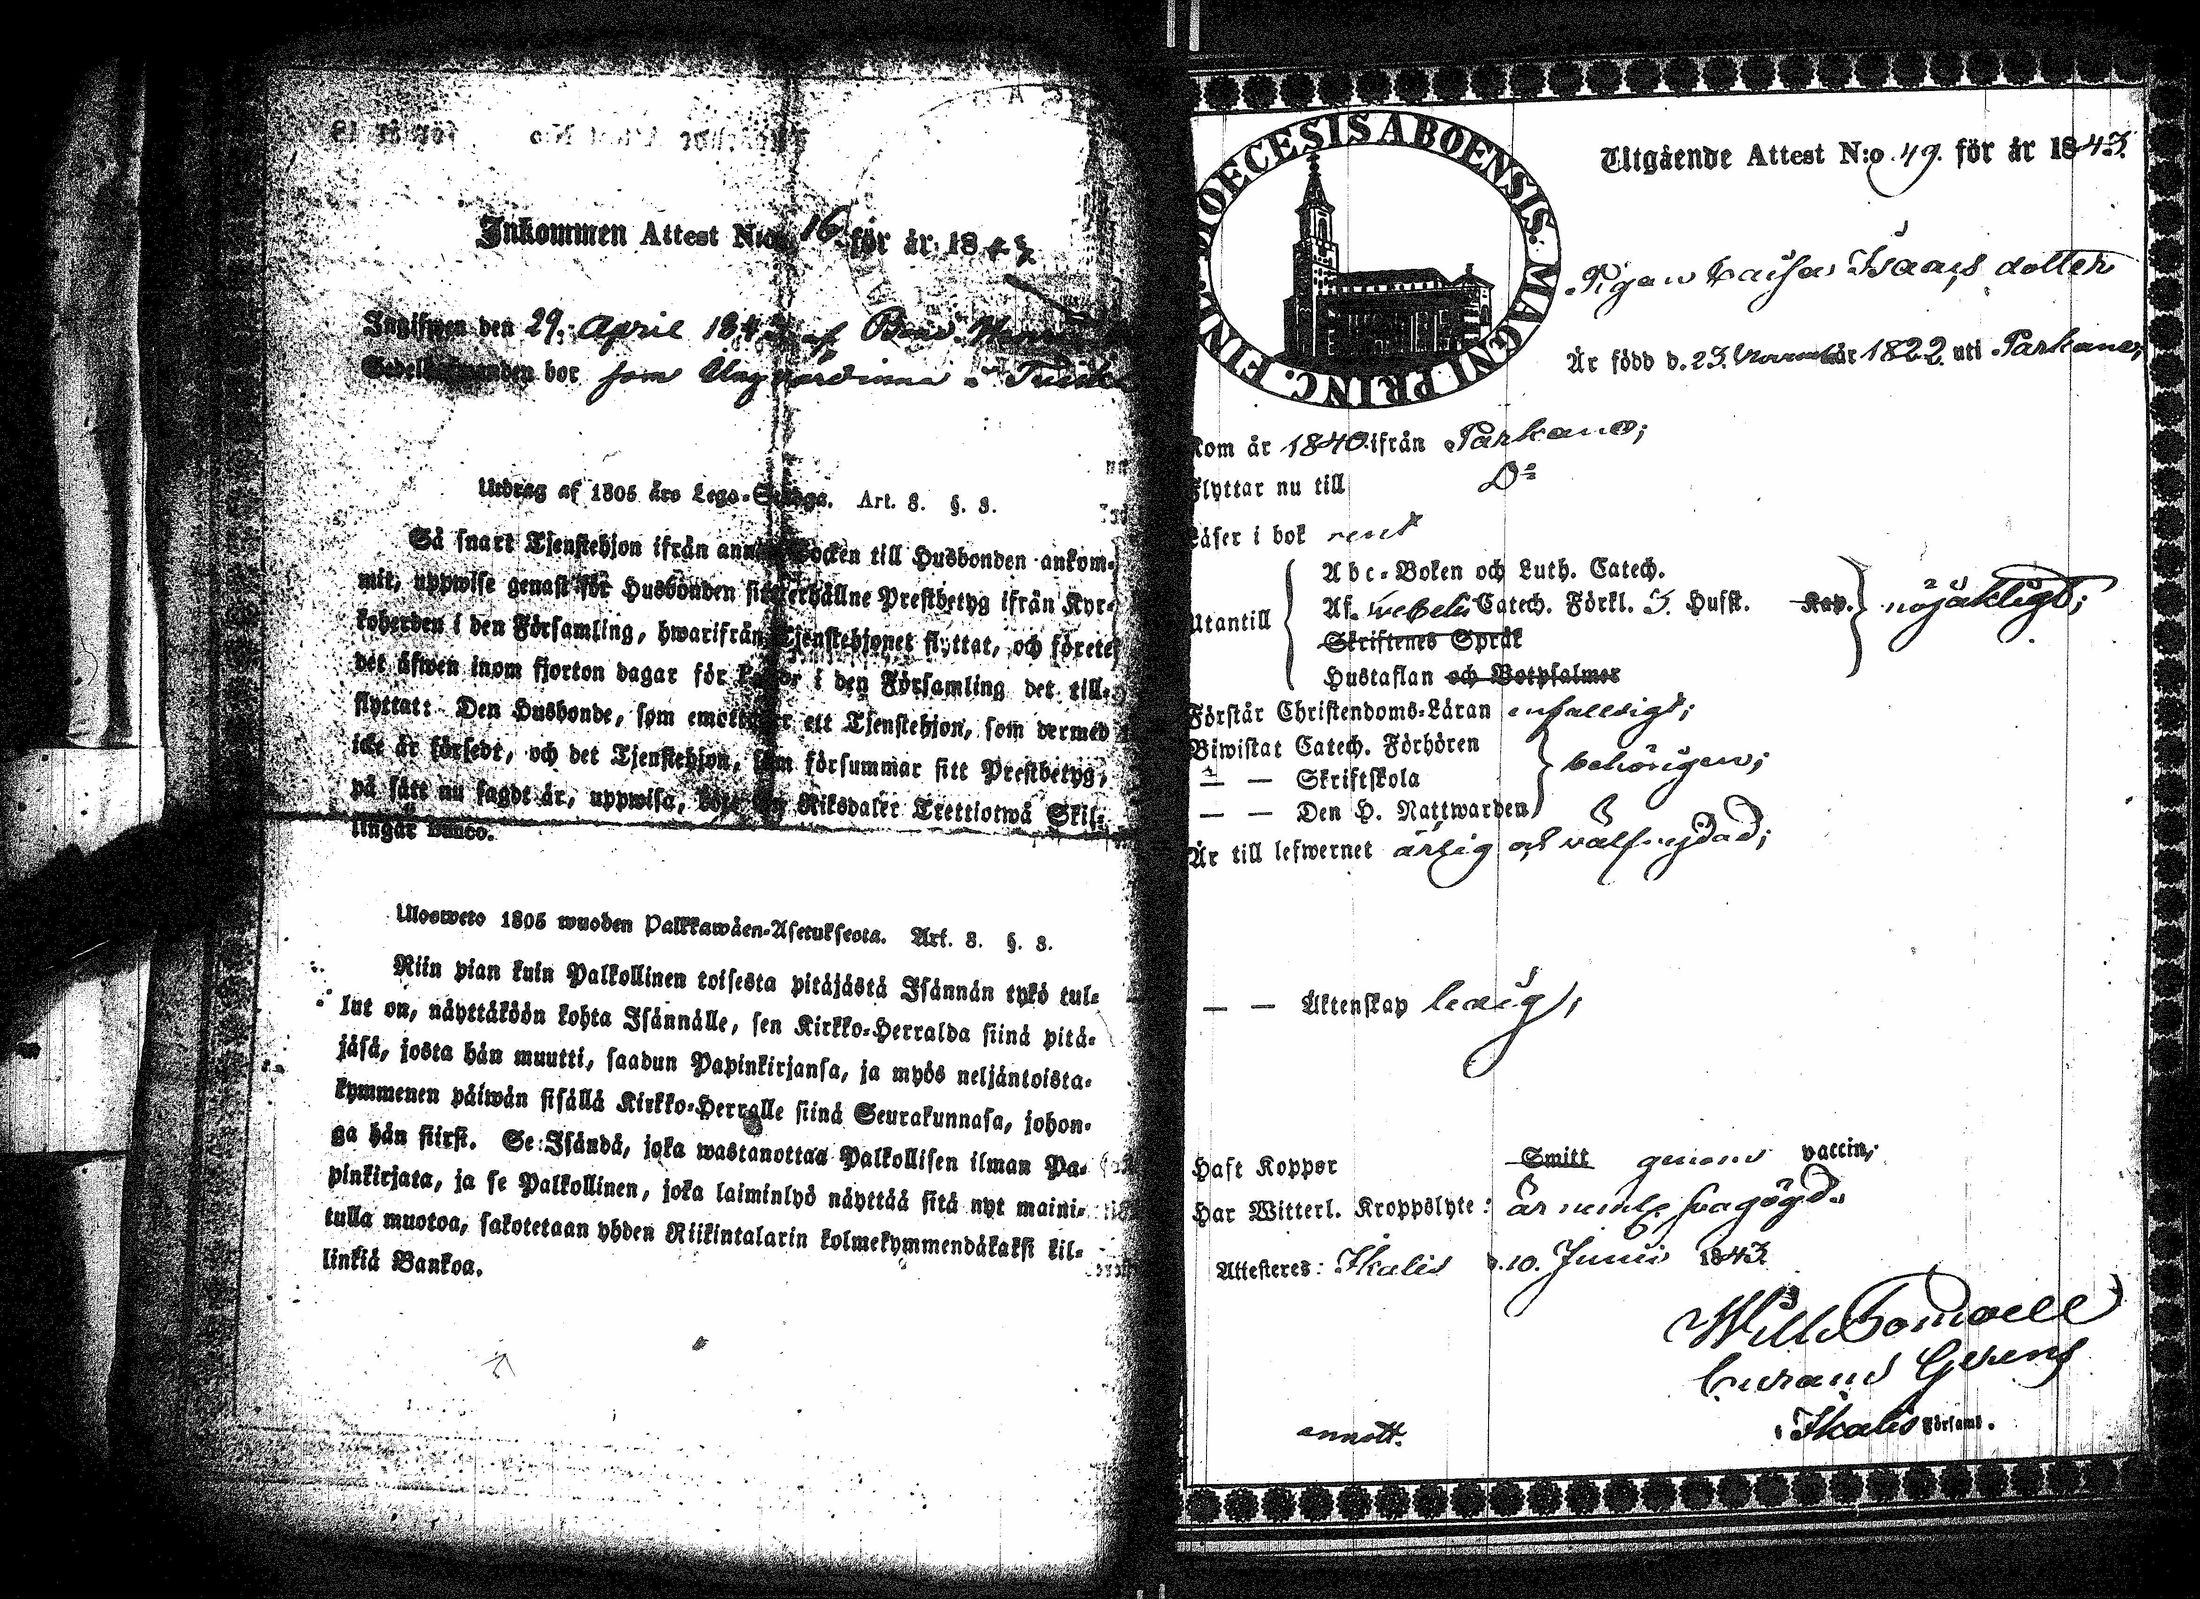 Inkommen Attest N:o 16 för år 1843
Ingifwen den 29. April 1843 af
bor som
Utdrag af 1805 års Lego-Stadga. Art. 8. §. 3.
Så snart Tjenstehjon ifrån annan Socken till Husbonden ankom-
mit, uppwise genast för Husbonden sitt erhållne Prestbetyg ifrån Kyr-
koherden i den Församling, hwarifrån Tjenstehjonet flyttat, och förete
det äfwen inom fjorton dagar för i den Församling det till-
flyttat: Den Husbonde, som emottager ett Tjenstehjon, som dermed
icke är försedt, och det Tjenstehjon, som försummar sitt Prestbetyg,
på sätt nu sagdt är, uppwisa, böte en Riksdaler Trettiotwå Skil-
lingar Banco.
Ulosweto 1805 wuoden Palkkawäen-Asetuksesta. Art. 8. §. 3.
Niin pian kuin Palkollinen toisesta pitäjästä Isännän tykö tul-
lut on, näyttäköön kohta Isännälle, sen Kirkko-Herralda siinä pitä-
jäsä, josta hän muutti, saadun Papinkirjansa, ja myös neljäntoista-
kymmenen päiwän sisällä Kirkko-Herralle siinä Seurakunnasa, johon-
ga hän siirsi. Se Isändä, joka wastanottaa Palkollisen ilman Pa-
pinkirjata, ja se Palkollinen, joka laiminlyö näyttää sitä nyt maini-
tulla muotoa, sakotetaan yhden Riikintalarin kolmekymmendäkaksi kil-
linkiä Bankoa.
DIOECESIS ABOENSIS. MAGNI PRINC. FINL.
Utgående Attest N:o 49. för år 1843.
Pigan Caisa Isaacs dotter
Är född d. 23. November år 1822 uti Parkano;
Kom år 1840 ifrån Parkano;
Flyttar nu till D:o
Läser i bok rent
Utantill
Abc-Boken och Luth. Catech.
Af. Webelii Catech. Förkl. S. Hufst. Kap. nöjaktigt;
Skriftenes Språk
Hustaflan och Botpsalmer
Förstår Christendoms-Läran enfalldigt;
Biwistat Catech. Förhören
— — Skriftskola behörigen;
— — Den H. Nattwarden
Är till lefwernet ärlig och välfrejdad;
— — Äktenskap ledig;
Haft Koppor Smitt genom vaccin;
Har Witterl. Kroppslyte: Är svagögd.
Attesteres: Ikalis d. 10. Junii 1843
Curam Gerens
Ikalis Församl.
annott.